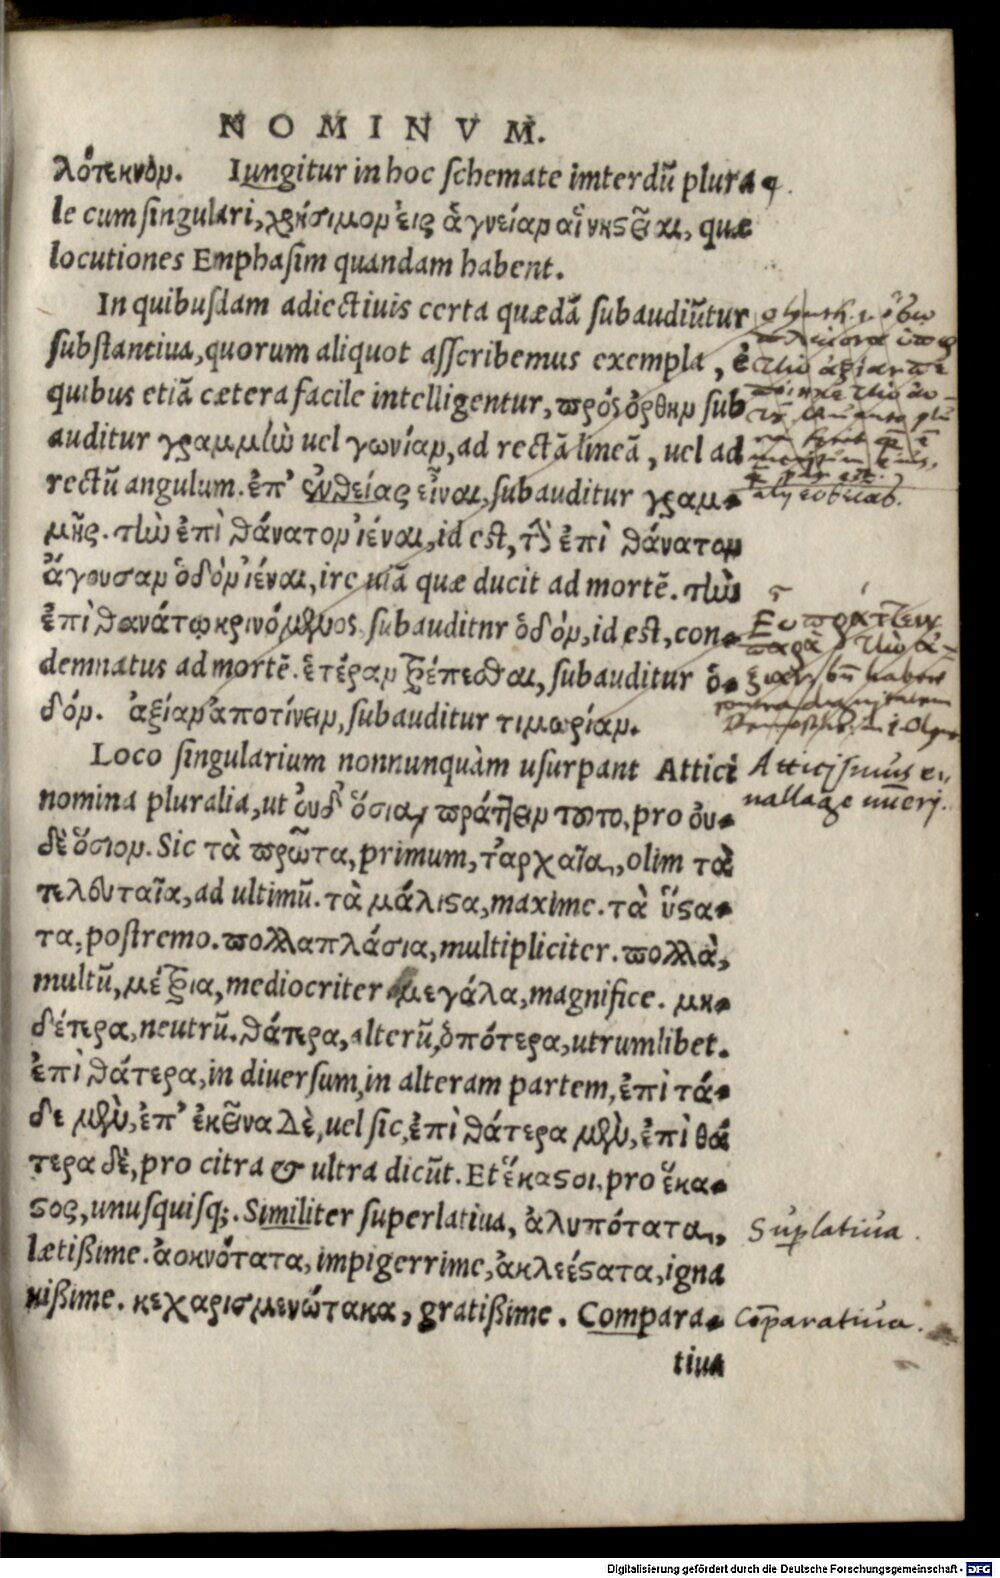 NOMINVM.
λότεκνομ. Iungitur in hoc schemate imterdũ plura
le cum singulari, χρήσιμομ εἰς ἁγνείαμ αἴνησθαι, quæ
locutiones Emphasim quandam habent.
In quibusdam adiectiuis certa quædã subaudiũtur
substantiua, quorum aliquot asscribemus exempla, è
quibus etiã cætera facile intelligentur, πρός ὀρθημ sub
auditur γραμμὼ uel γωνίαμ, ad rectã lineã, uel ad
rectũ angulum. ἐπ' εὐθείας εἶναι, subauditur γραμ-
μῆς. τὼ ἐπὶ θάνατομ ἰέναι, id est, τὼ ἐπὶ θάνατομ
ἄγουσαμ ὁδόμ ἰέναι, ire uiã quæ ducit ad mortẽ. τὼ
ἐπὶ θανάτῳ κρινόμενος, subauditnr ὁδόμ, id est, con-
demnatus ad mortẽ. ἑτέραμ τρέπεσθαι, subauditur ὁ-
δόμ. ἀξίαμ ἀποτίνειμ, subauditur τιμωρίαμ.
Loco singularium nonnunquàm usurpant Attici
nomina pluralia, ut οὐδ' ὅσια, πράττειμ τοῦτο, pro οὐ-
δὲ ὅσιομ. Sic τὰ πρῶτα, primum, τ'ἀρχαῖα, olim τὰ
τελευταῖα, ad ultimũ. τὰ μάλιστα, maxime. τὰ ὕστα-
τα, postremo. πολλαπλάσια, multipliciter. πολλὰ,
multũ, μέτρια, mediocriter μεγάλα, magnifice. μη-
δέτερα, neutrũ. θάτερα, alterũ, ὁπότερα, utrumlibet.
ἐπὶ θάτερα, in diuersum, in alteram partem, ἐπὶ τά-
δε μὲν, ἐπ' ἐκεῖνα Δὲ, uel sic, ἐπὶ θάτερα μὲν, ἐπὶ θά
τερα δὲ, pro citra & ultra dicũt. Et ἕκαστοι, pro ἕκα-
στος, unusquisq;. Similiter superlatiua, ἀλυπότατα,
lætißime. ἀοκνότατα, impigerrime, ἀκλεέστατα, igna
uißime. κεχαρισμενώτακα, gratißime. Compara-
tiua
Εὐ πράττειν
παρὰ τὼ ἀ-
ξίαν
Atticismus e-
nallage nũeri.
Suplatiua.
Cõparatiua.
Digitalisierung gefördert durch die Deutsche Forschungsgemeinschaft - DFG